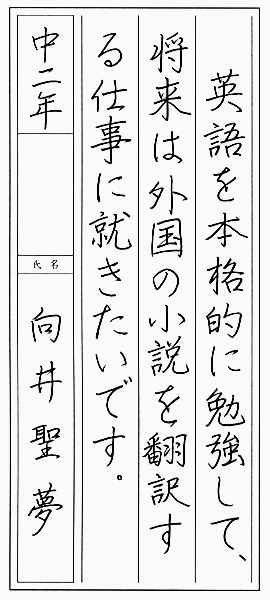 英語を本格的に勉強して、
将来は外国の小説を翻訳す
る仕事に就きたいです。
中二年
氏名
向井聖夢